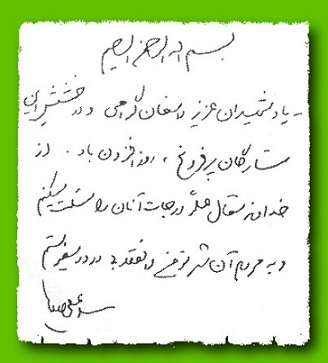 بسم الله الرحمن الرحیم
- یاد شهیدان عزیز دامغان گرامی و درخشش این
ستارگان پرفروغ، روزافزون باد. از
خداوند متعال علو درجات آنان را مسئلت میکنم
و به مردم آن شهر و تفقد درود میفرستم
سید علی